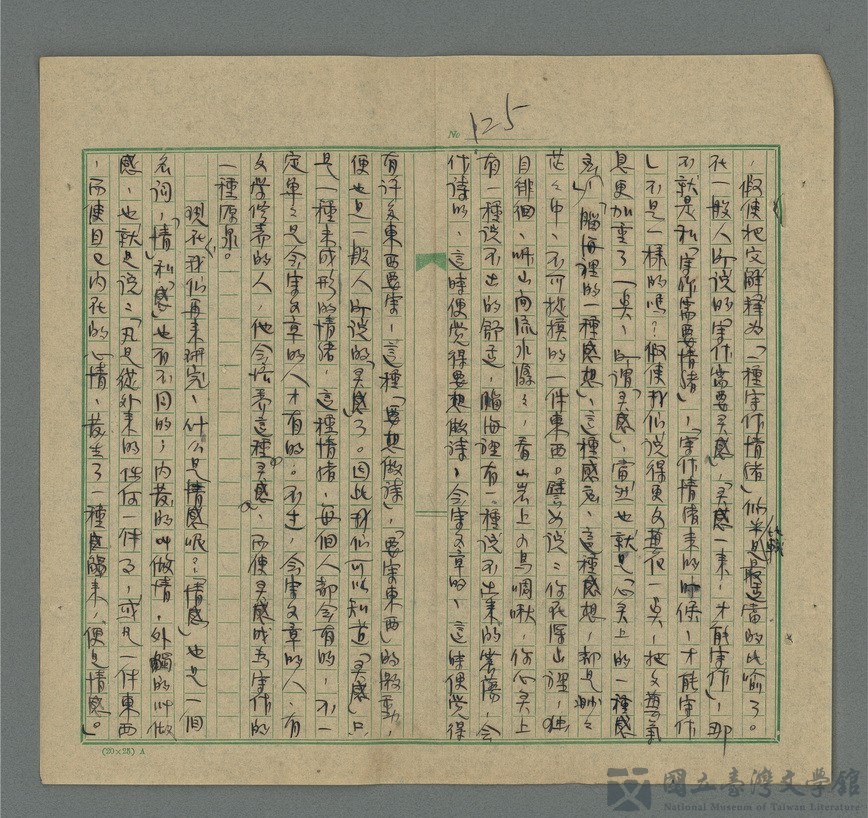 No 125
，假使把它解釋為「一種寫作情緒」似乎是最適當的比喻了。
在一般人所說的寫作需要灵感，「灵感一来，才能寫作」，那
不就是和「寫作需要情緒」，「寫作情緒来的时候，才能寫作
」不是一樣的嗎？假使我们說得更文藝花一奌，把文藝氣
息更加重了一奌，所謂「灵感」，當然也就是「心灵上的一種感
「腦海裡的一種感想」，這種感意，這種感想，都是渺々
茫々中、不可捉摸的一件東西。譬如説：你在深山裡，独
自徘徊，听山间流水潺々，看山岩上の鳥啁啾，你心灵上
有一種説不出的舒适，腦海裡有一種説不出来的紫蕩，会
作詩的，這時便覚得要想做詩，会寫文章的，這時便覚得
有許多東西要寫，這種「要想做詩」，「要寫東西」的激動，
便也是一般人所説的「灵感」了。因此我们可以知道「灵感」只
是一種未成形的情緒，這種情緒，每個人都会有的，不一
定单々是会寫文章的人才有的。不过，会寫文章的人，有
文学修养的人，他会培养這種灵感，而使灵感成为寫作的
一種原泉。
現在，我们再来研究，什么是情感呢？「情感」也是一個
名詞，「情」和「感」也有不同的，内发的叫做情，外觸的叫做
感，也就是説：「凡是從外来的任何一件事，或凡一件東西
，而使自己内在的心情，发生了一種感觸来，便是情感。」
(20×25) A
國立臺灣文學館
National Museum of Taiwan Literature